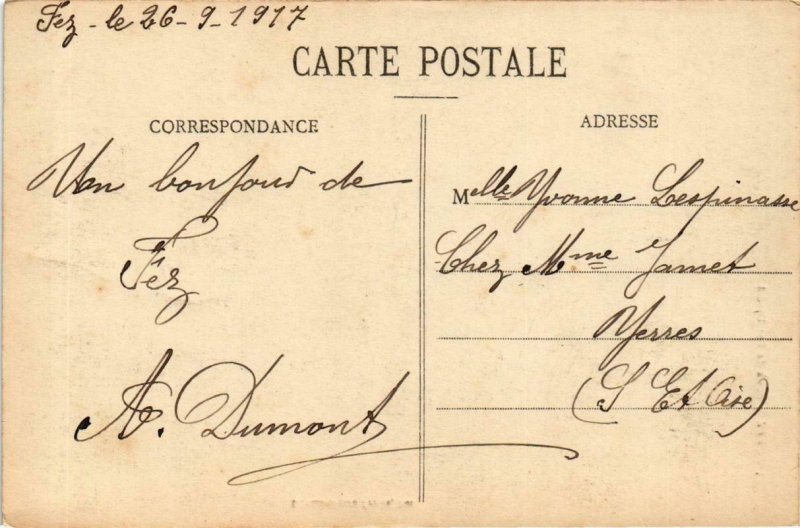 Fez - le 26 - 9 - 1917
CARTE POSTALE
CORRESPONDANCE
Un bonjour de
Fez
A. Dumont
ADRESSE
Melle Yvonne Lespinasse
Chez Mme Jamet
Yerres
(S Et Oise)